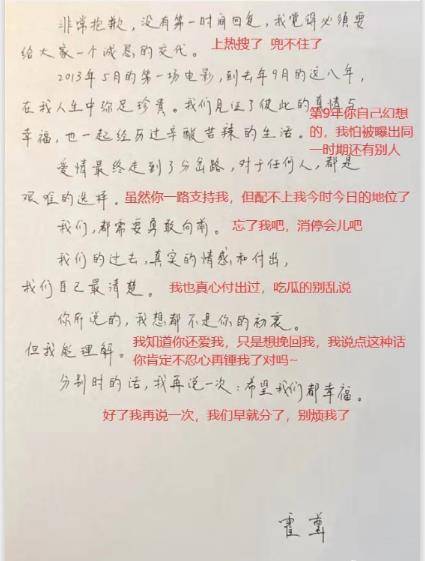 非常抱歉，没有第一时间回复，我觉得必须要
给大家一个诚恳的交代。上热搜了 兜不住了
2013年5月的第一场电影，到去年9月的这八年，
在我人生中弥足珍贵。我们见证了彼此的真情与
幸福，也一起经历过辛酸苦辣的生活。第9年你自己幻想
的，我怕被曝出同
一时期还有别人
爱情最终走到了分岔路，对于任何人，都是
艰难的选择。虽然你一路支持我，但配不上我今时今日的地位了
我们，都需要勇敢向前。忘了我吧，消停会儿吧
我们的过去，真实的情感和付出，
我们自己最清楚。我也真心付出过，吃瓜的别乱说
你所说的，我想都不是你的初衷。
但我能理解。我知道你还爱我，只是想挽回我，我说点这种话
你肯定不忍心再锤我了对吗~
分别时的话，我再说一次：希望我们都幸福。
好了我再说一次，我们早就分了，别烦我了
霍尊